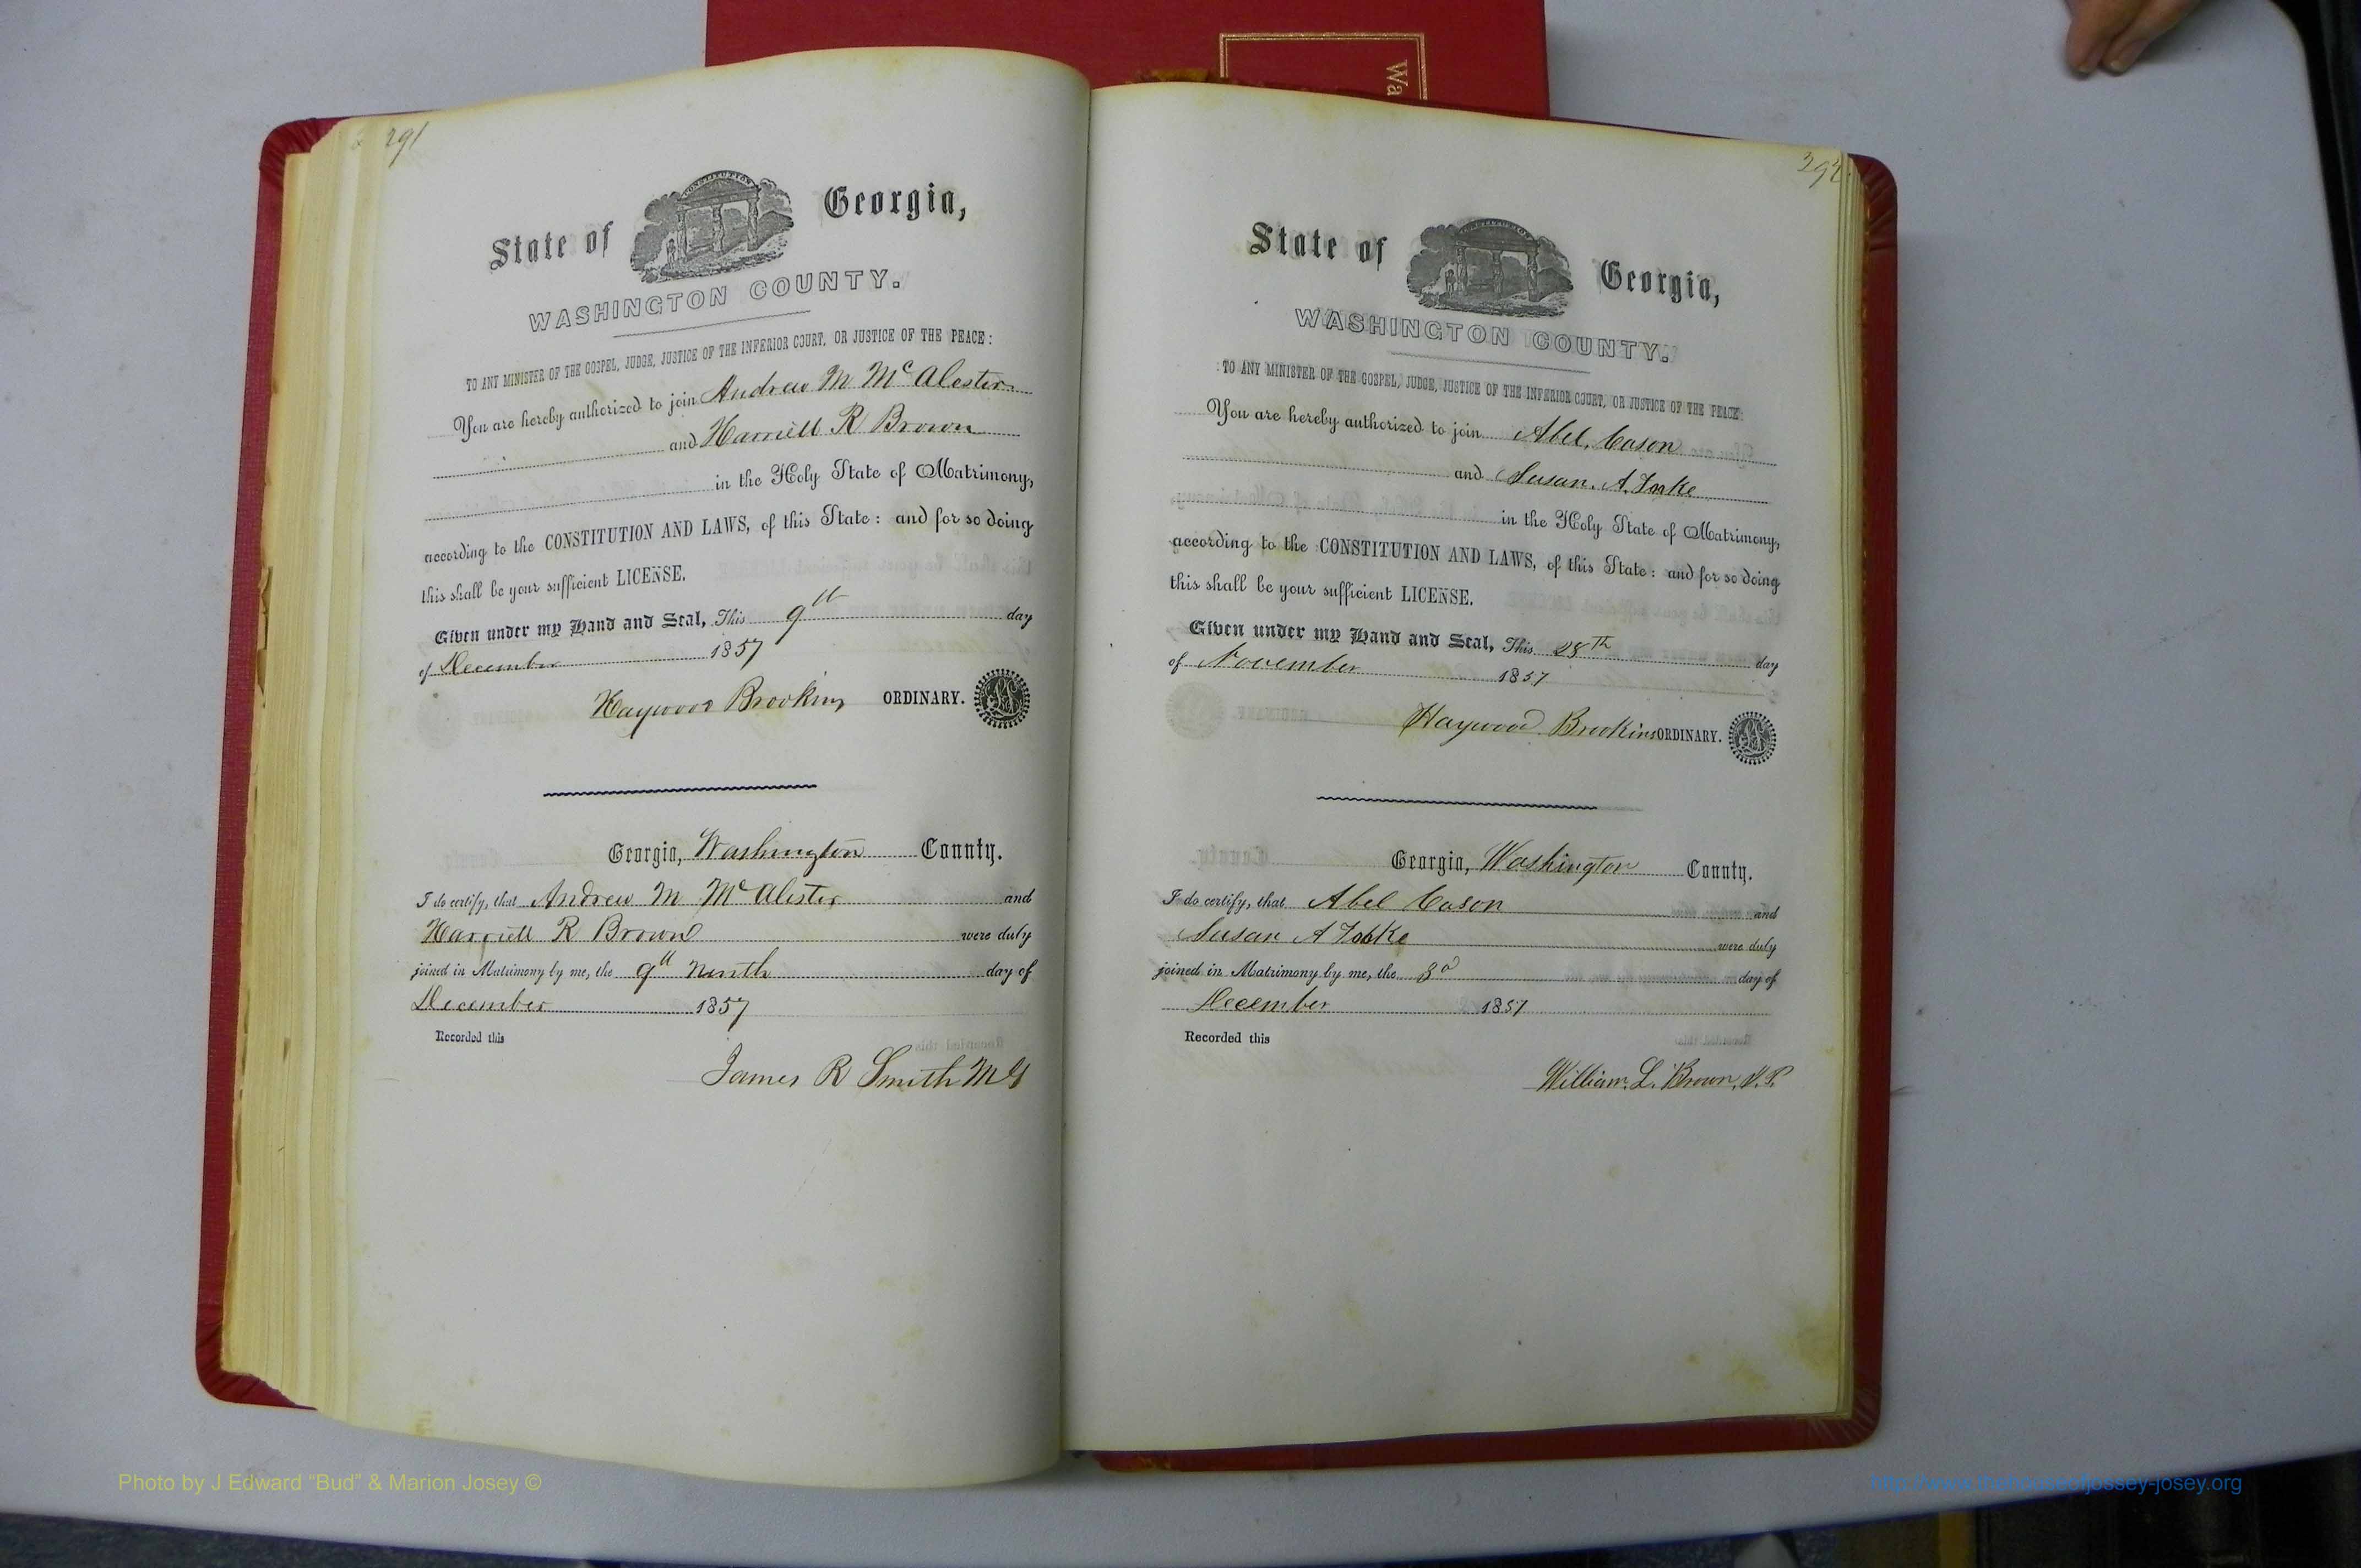 Wa
291
CONSTITUTION
State of Georgia,
WASHINGTON COUNTY.
TO ANY MINISTER OF THE GOSPEL, JUDGE, JUSTICE OF THE INFERIOR COURT, OR JUSTICE OF THE PEACE:
You are hereby authorized to join Andrew M McAlester
and Harriell R Brown
in the Holy State of Matrimony,
according to the CONSTITUTION AND LAWS, of this State: and for so doing
this shall be your sufficient LICENSE.
Given under my Hand and Seal, This 9th day
of December 1857
Haywood Brookins ORDINARY.
Georgia, Washington County.
I do certify, that Andrew M McAlister and
Harriell R Brown were duly
joined in Matrimony by me, the 9th Ninth day of
December 1857
Recorded this
James R Smith MG
292
State of Georgia,
WASHINGTON COUNTY.
TO ANY MINISTER OF THE GOSPEL, JUDGE, JUSTICE OF THE INFERIOR COURT, OR JUSTICE OF THE PEACE:
You are hereby authorized to join Abel Cason
and Susan. A.
in the Holy State of Matrimony,
according to the CONSTITUTION AND LAWS, of this State: and for so doing
this shall be your sufficient LICENSE.
Given under my Hand and Seal, This 28th day
of November 1857
Haywood Brookins ORDINARY.
Georgia, Washington County.
I do certify, that Abel Cason and
Susan A were duly
joined in Matrimony by me, the 3d day of
December 1857
Recorded this
William. L. Brown, J.P.
Photo by J Edward “Bud” & Marion Josey ©
http://www.thehouseofjossey-josey.org